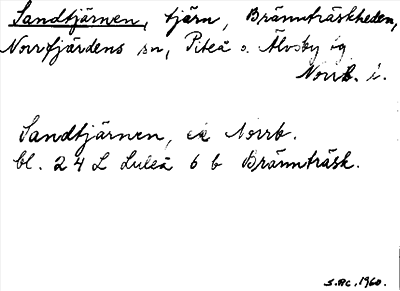 Sandtjärnen, tjärn, Brännträskheden,
Norrfjärdens sn, Piteå o. Älvsby tg
Norrb. l.
Sandtjärnen, ek Norrb.
bl. 24 L Luleå 6 b Brännträsk.
S.AC. 1960.